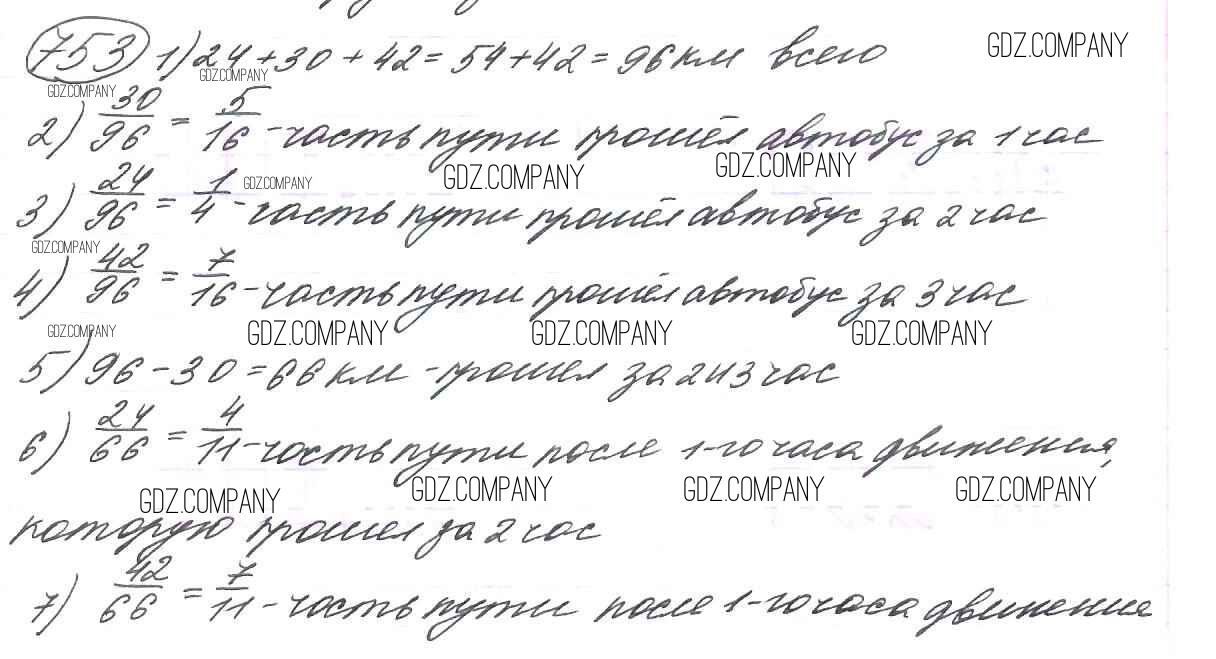 753 1) 24 + 30 + 42 = 54 + 42 = 96 км всего
GDZ.COMPANY
GDZ.COMPANY
GDZ.COMPANY
2) 30/96 = 5/16 - часть пути прошёл автобус за 1 час
GDZ.COMPANY GDZ.COMPANY
3) 24/96 = 1/4 - часть пути прошёл автобус за 2 час
GDZ.COMPANY
GDZ.COMPANY
4) 42/96 = 7/16 - часть пути прошёл автобус за 3 час
GDZ.COMPANY GDZ.COMPANY GDZ.COMPANY GDZ.COMPANY
5) 96 - 30 = 66 км - прошел за 2 и 3 час
6) 24/66 = 4/11 - часть пути после 1-го часа движения,
GDZ.COMPANY GDZ.COMPANY GDZ.COMPANY GDZ.COMPANY
которую прошел за 2 час
7) 42/66 = 7/11 - часть пути после 1-го часа движения